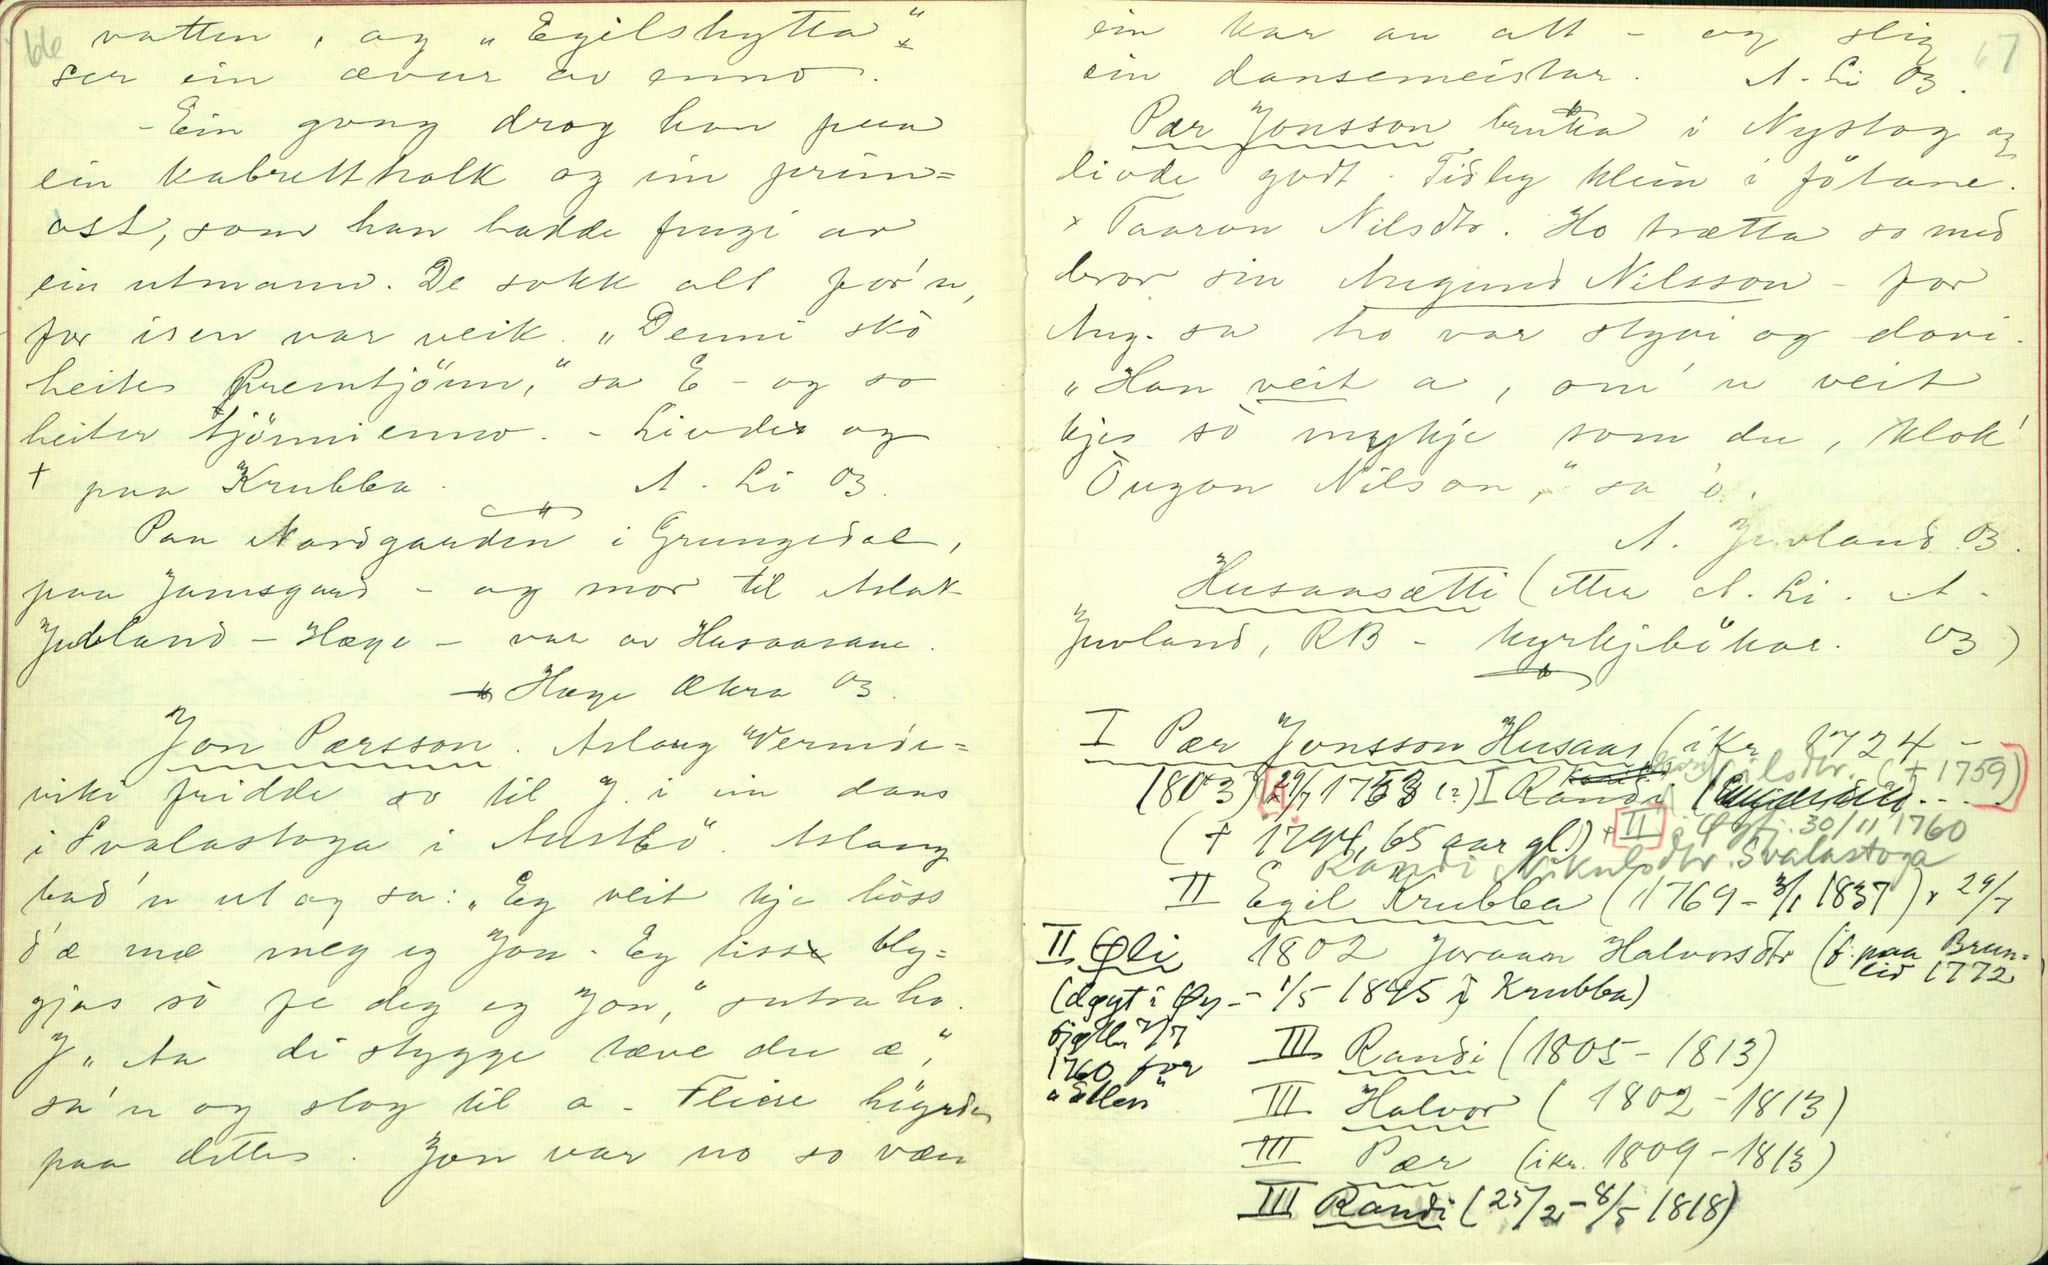 66
vatten, og „Egilshytta“
ser ein ævur av enno.
- Ein gong drog han paa
ein kabretthalk og ein prim=
ost, som han hadde fingi av
ein utmann. De sokk alt for'n,
for isen var veik. „Denni skò
heite Premtjönn,“ sa E - og so
heiter tjönni enno. - Livde og
+ paa Krubba. A. Li 03.
Paa Nordgarden i Grungedal,
paa Jamsgard - og mor til Aslak
Juvland - Hæge - var av Husaasane.
Hæge Økra 03.
Jon Pærsson. Aslaug Vermde=
viki fridde so til J. i ein dans
i Svalastoga i Austbö. Aslaug
bad'n ut og sa: „Eg veit kje höss
d'æ mæ meg eg Jon. Eg tiss bly=
gjas sò fe deg eg Jon,“ sutra ho.
J „Aa di stygge tæve du æ,“
sa'n og slog til a. - Fleire höyrde
paa dette. Jon var no so væn
67
ein kar an att - og slig
ein dansemeistar. A. Li 03.
Pær Jonsson bruka i Nystog og
livde godt. Tidleg klein i fötane.
x Taaran Nilsdtr. Ho trætta so med
bror sin Augund Nilsson - for
Aug. sa ho var styvi og dovi.
„Han veit a, om 'n veit
kje so mykje som du, klok'
Öugon Nilson,“ sa ò.
A. Juvland 03.
Husaasætti (etter A. Li. A.
Juvland, RB - kyrkjebökar. 03)
I Pær Jonsson Husaas (ikr 1724 -
1803) 29/7 1753 (?) I Nilsdtr. (+ 1759)
(+ 1794, 65 aar gl.) x II i Øyfj. 30/11 1760
Randi Nikulsdtr. Svalastoga
II Egil Krubba (1769 - 3/1 1837) x 29/7
1802 Joraan Halvorsdtr (f. paa Brun=
lid 1772
- 1/5 1845 i Krubba)
II Øli
(døypt i Øy-
fjelli 7/7
1760 for
„Ellen“
III Randi (1805 - 1813)
III Halvor (1802 - 1813)
III Pær (ikr. 1809 - 1813)
III Randi (25/2 - 8/5 1818)